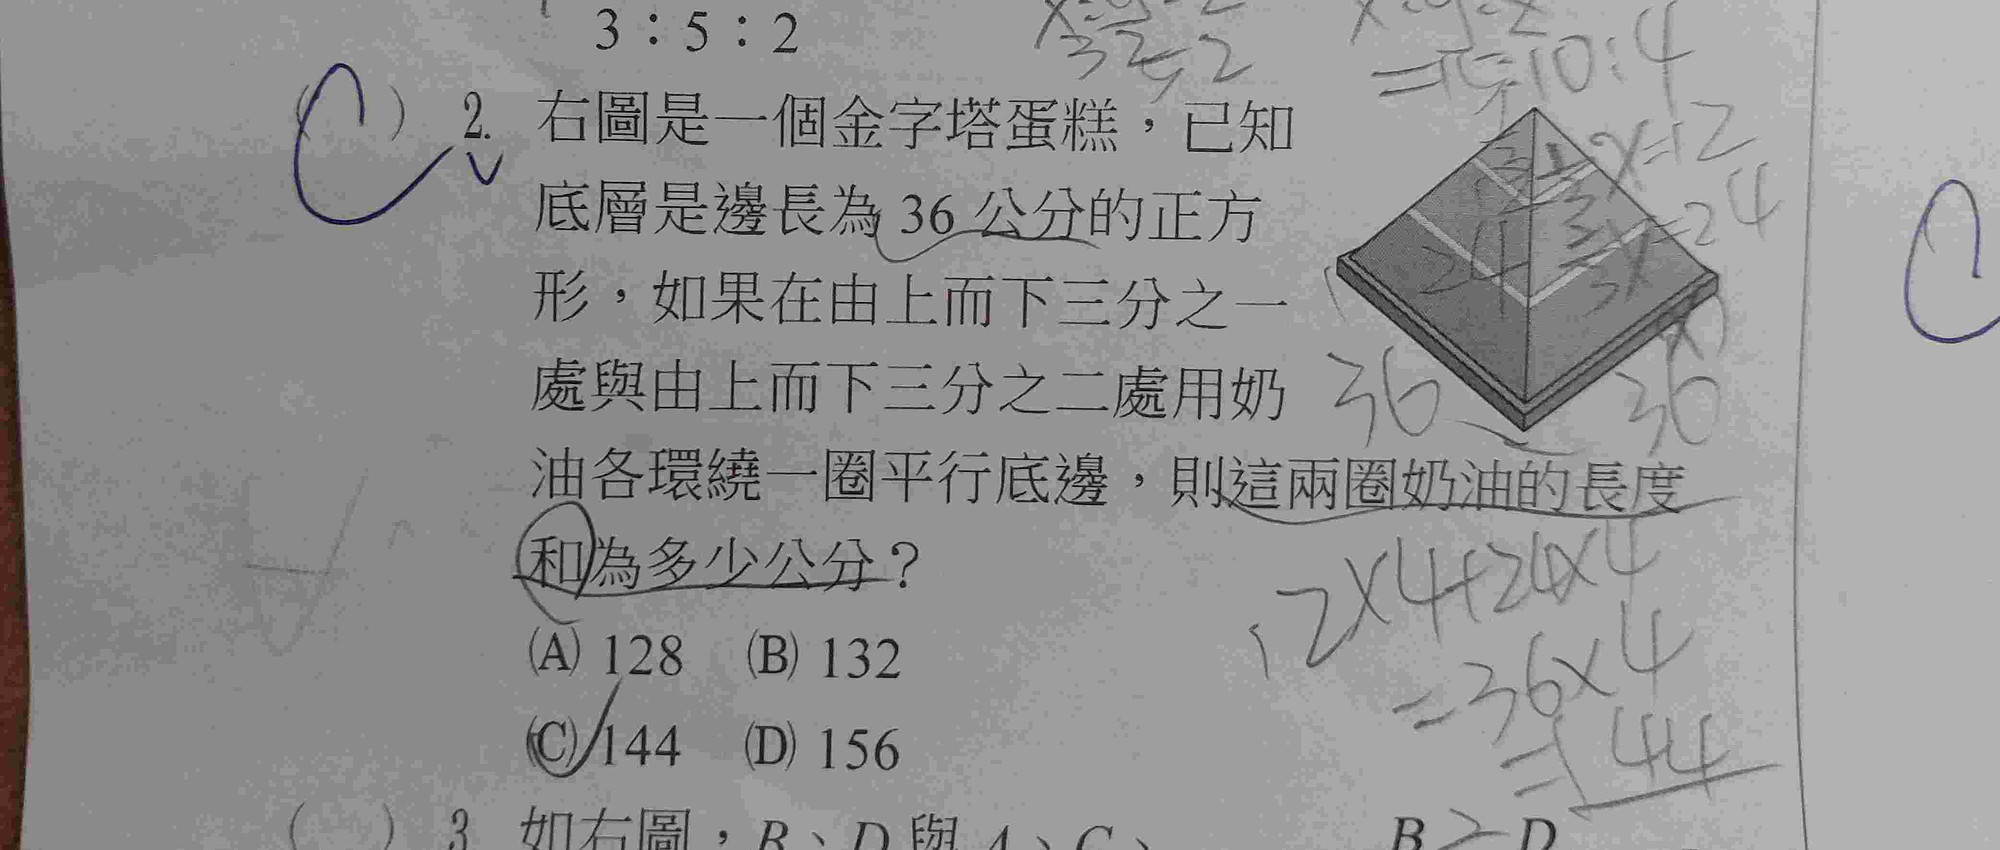 3：5：2
=15:10:4
C
( ) 2. 右圖是一個金字塔蛋糕，已知
底層是邊長為 36 公分的正方
形，如果在由上而下三分之一
處與由上而下三分之二處用奶
油各環繞一圈平行底邊，則這兩圈奶油的長度
和為多少公分？
(A) 128 (B) 132
(C) 144 (D) 156
x=12
=24
36
36
12×4+24×4
=36×4
=144
( ) 3. 如右圖，B、D 與 A、C、
B D